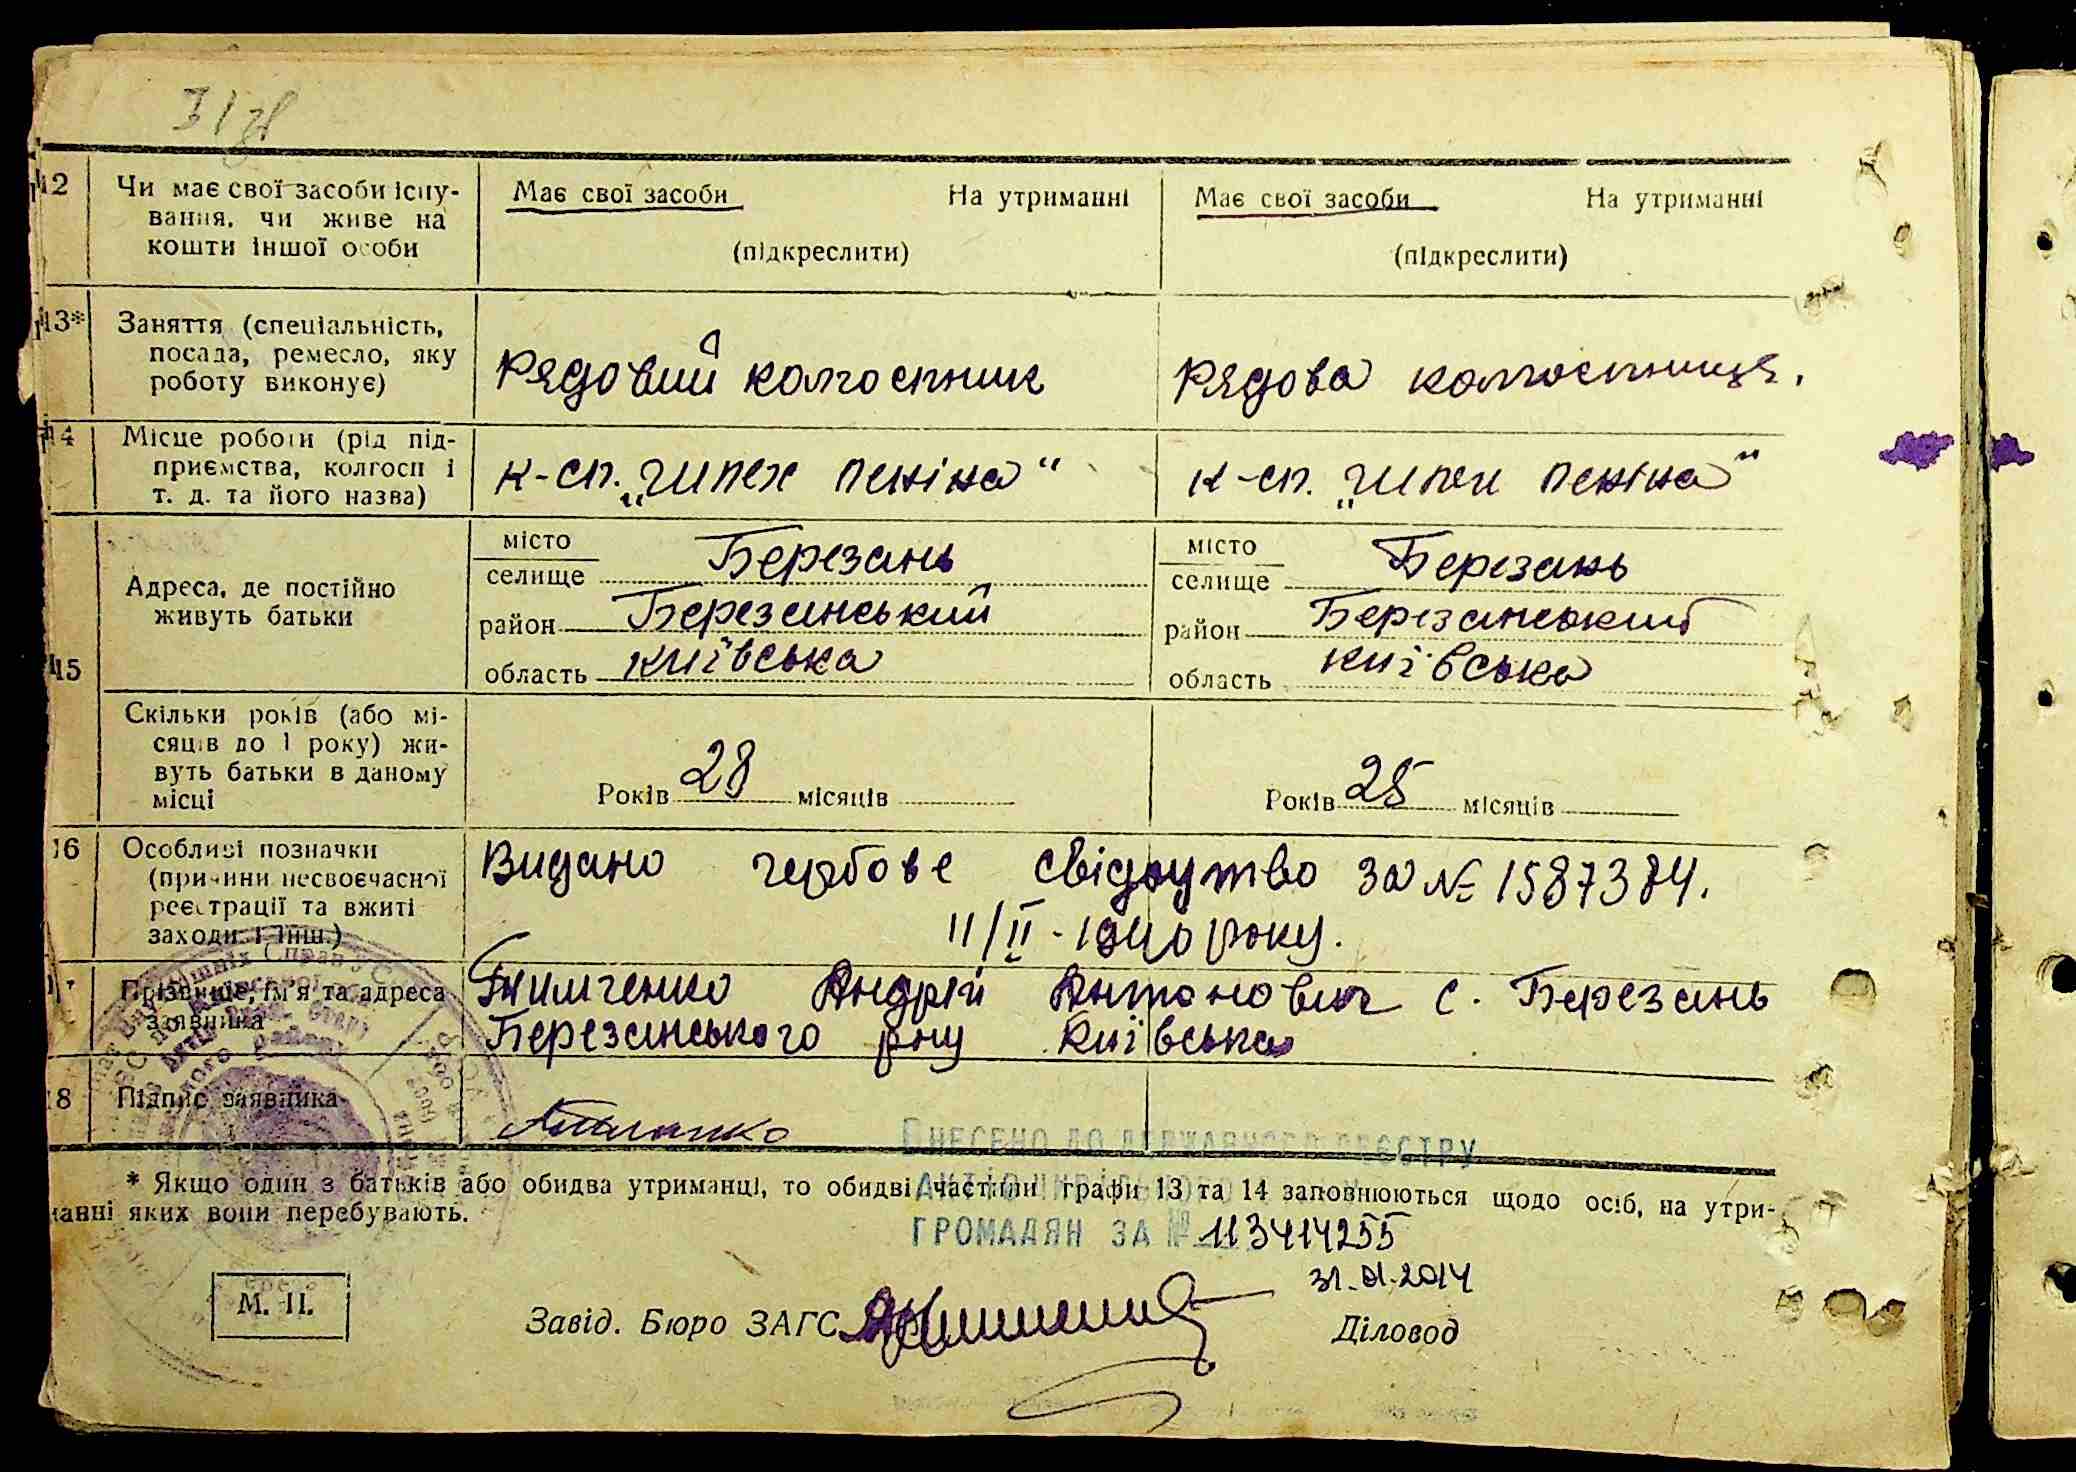 12 Чи має свої засоби існу-
вання, чи живе на
кошти іншої особи
Має свої засоби На утриманні
(підкреслити)
Має свої засоби На утриманні
(підкреслити)
13* Заняття (спеціальність,
посада, ремесло, яку
роботу виконує)
Рядовий колгоспник
Рядова колгоспниця.
14 Місце роботи (рід під-
приємства, колгосп і
т. д. та його назва)
к-сп. „Шлях Леніна“
к-сп. „Шлях Леніна“
15 Адреса, де постійно
живуть батьки
місто
селище Березань
район Березанський
область Київська
місто
селище Березань
район Березанський
область Київська
Скільки років (або мі-
сяців до 1 року) жи-
вуть батьки в даному
місці
Років 28 місяців
Років 25 місяців
16 Особливі позначки
(причини несвоєчасної
реєстрації та вжиті
заходи і інш.)
Видано гербове свідоцтво за № 1587384.
11/II - 1940 року.
17 Прізвище, ім'я та адреса
заявника
Тимченко Андрій Антонович с. Березань
Березанського р-ну Київська
18 Підпис заявника
ВНЕСЕНО ДО ДЕРЖАВНОГО РЕЄСТРУ
* Якщо один з батьків або обидва утриманці, то обидві частини графи 13 та 14 заповнюються щодо осіб, на утри-
манні яких вони перебувають.
ГРОМАДЯН ЗА № 113414255
31.01.2014
М. П.
Завід. Бюро ЗАГС
Діловод